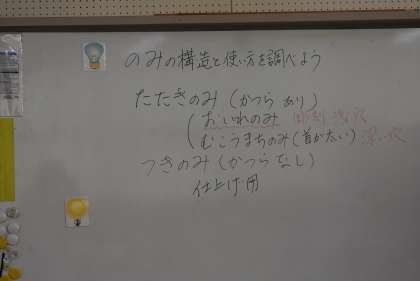 のみの構造と使い方を調べよう
たたきのみ(かつら あり)
おいれのみ 彫刻 浅い穴
むこうまちのみ(首が太い) 深い穴
つきのみ(かつらなし)
仕上げ用